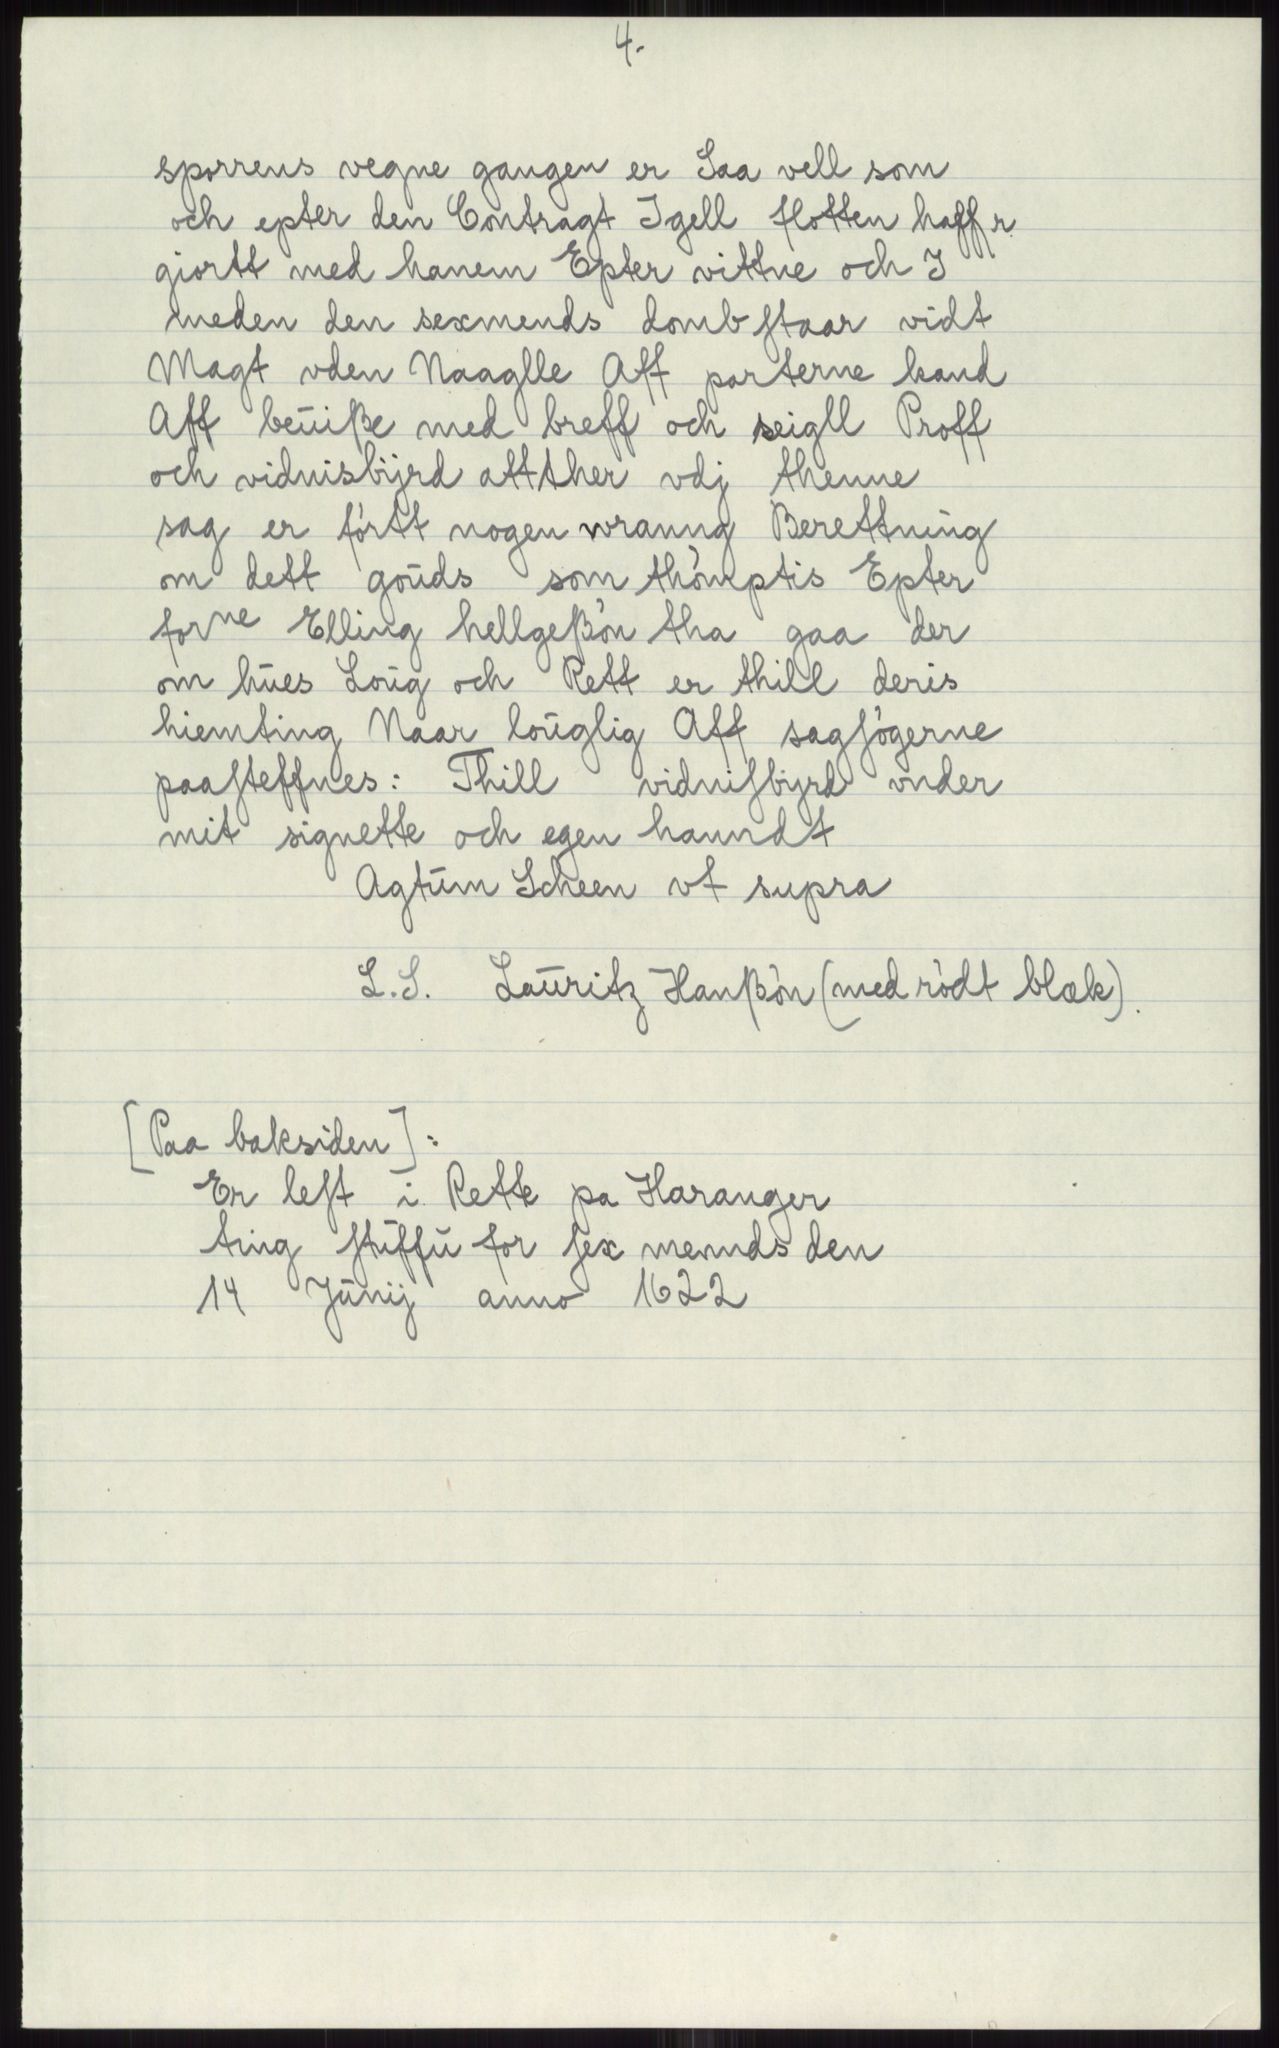 4.
sporrens vegne gangen er Saa vell som
och epter den Contragt Jgell flotten haffr
giortt med hanem Epter vittne och J
meden den sexmends domb ſtaar vidt
Magt vden Naaglle Aff parterne kand
Aff beūiße med breff och seigll Proff
och vidnisbÿrd attther vdj thenne
sag er förtt nogen wranng Berettning
om dett goūds som thömptis Epter
forne Elling hellgeßön tha gaa der
om hūes Loūg och Rett er thill deris
hiemting Naar loūglig Aff sagſögerne
paaſteffnes: Thill vidniſbÿrd vnder
mit signette och egen hanndt
Agtūm Scheen vt supra
L.S. Laūritz Hanßön (med rödt blæk).
[Paa baksiden]:
Er leſt i Rette pa Haranger
ting ſtūffū for ſex mennds den
14 Jūnij anno 1622